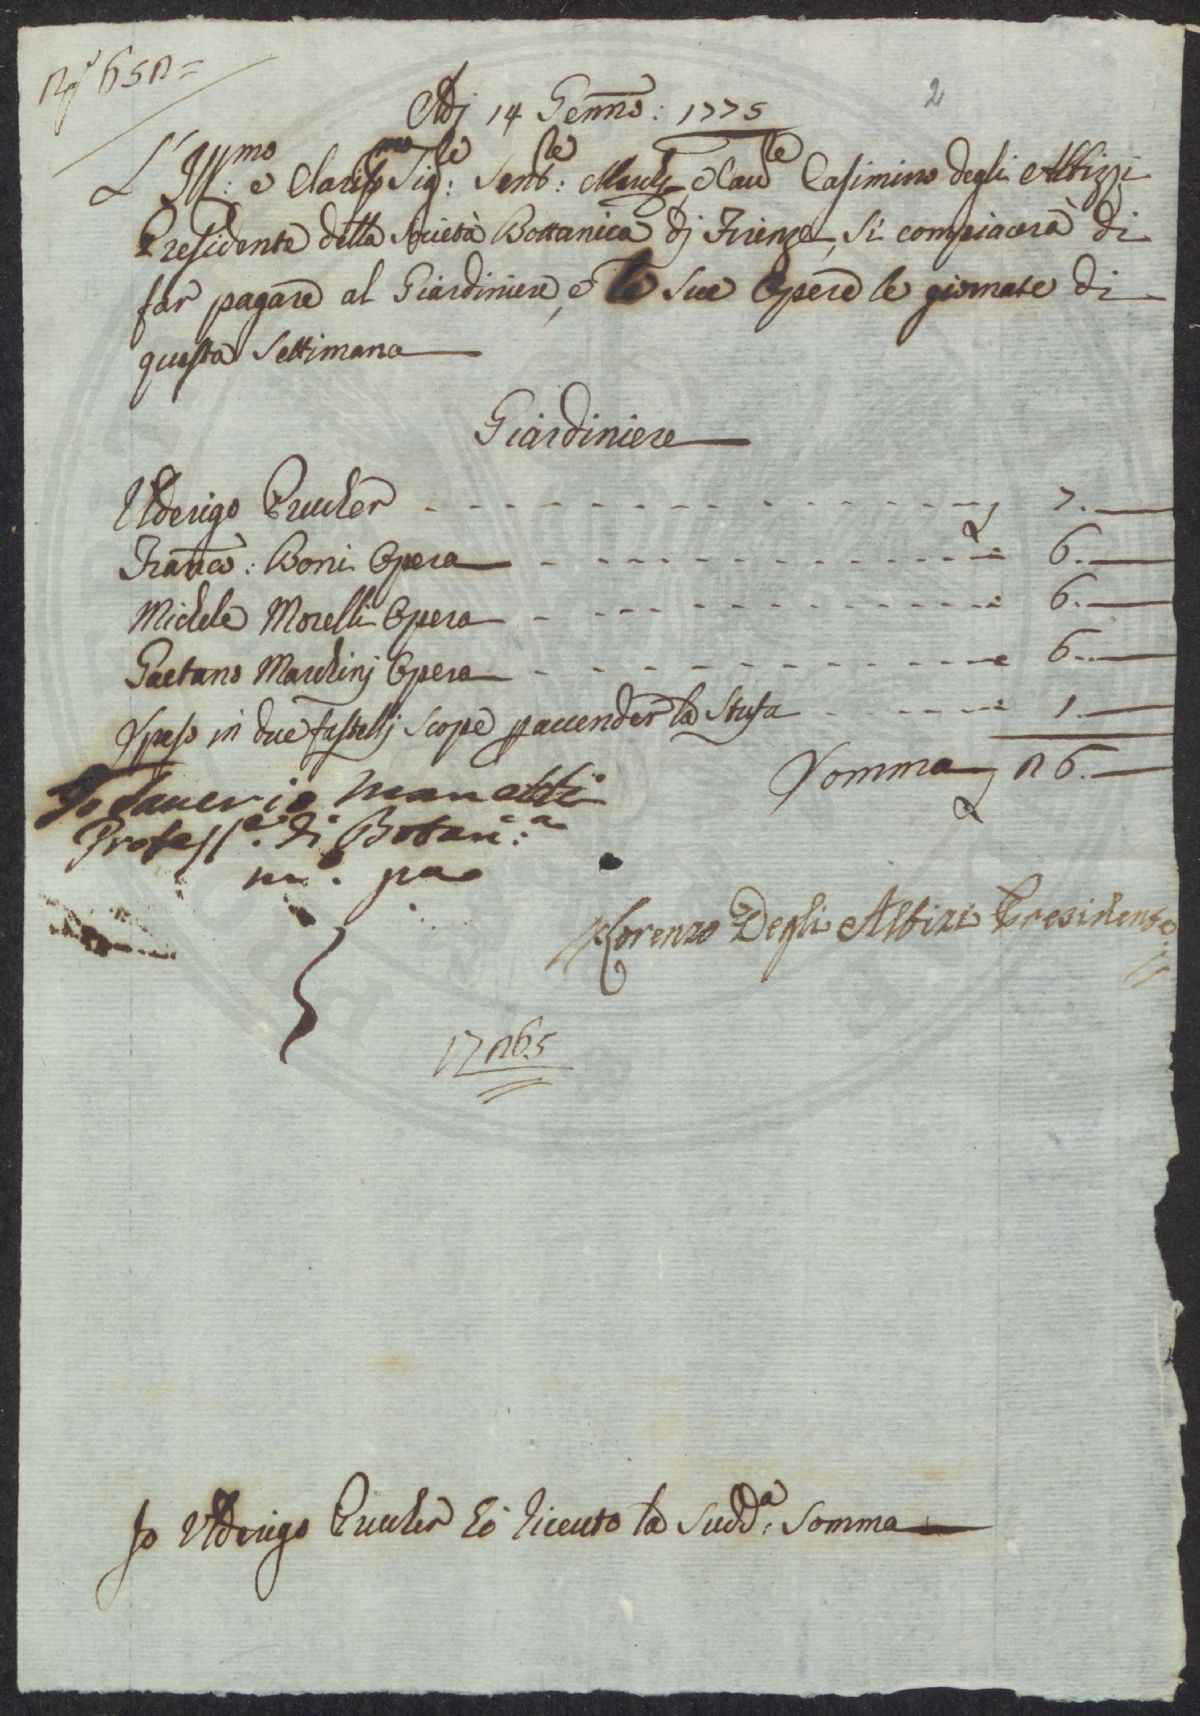 2
Adj 14 Genno: 1775
L'Ill:mo e Clariss:mo Sig:re Sen:re March:e e Cav:re Casimirro degli Albizzi
Presidente della Società Bottanica dj Firenze, si compiacerà di
far pagare al Giardiniere, e le sue Opere le giornate di
questa Settimana
Giardiniere
Ulderigo Prucher 7.
Franco: Boni Opera 6.
Michele Morelli Opera 6.
Gaetano Marchinj Opera 6.
Speso in due fastellj Scope p accender la Stufa 1.
Somma 26.
Io Saverio Manetti
Profess:e di Botan:ca
m:o pa
Lorenzo Degli Albizi Presidente
17265
Io Ulderigo Prucher hò riceuto la Sudd:a Somma